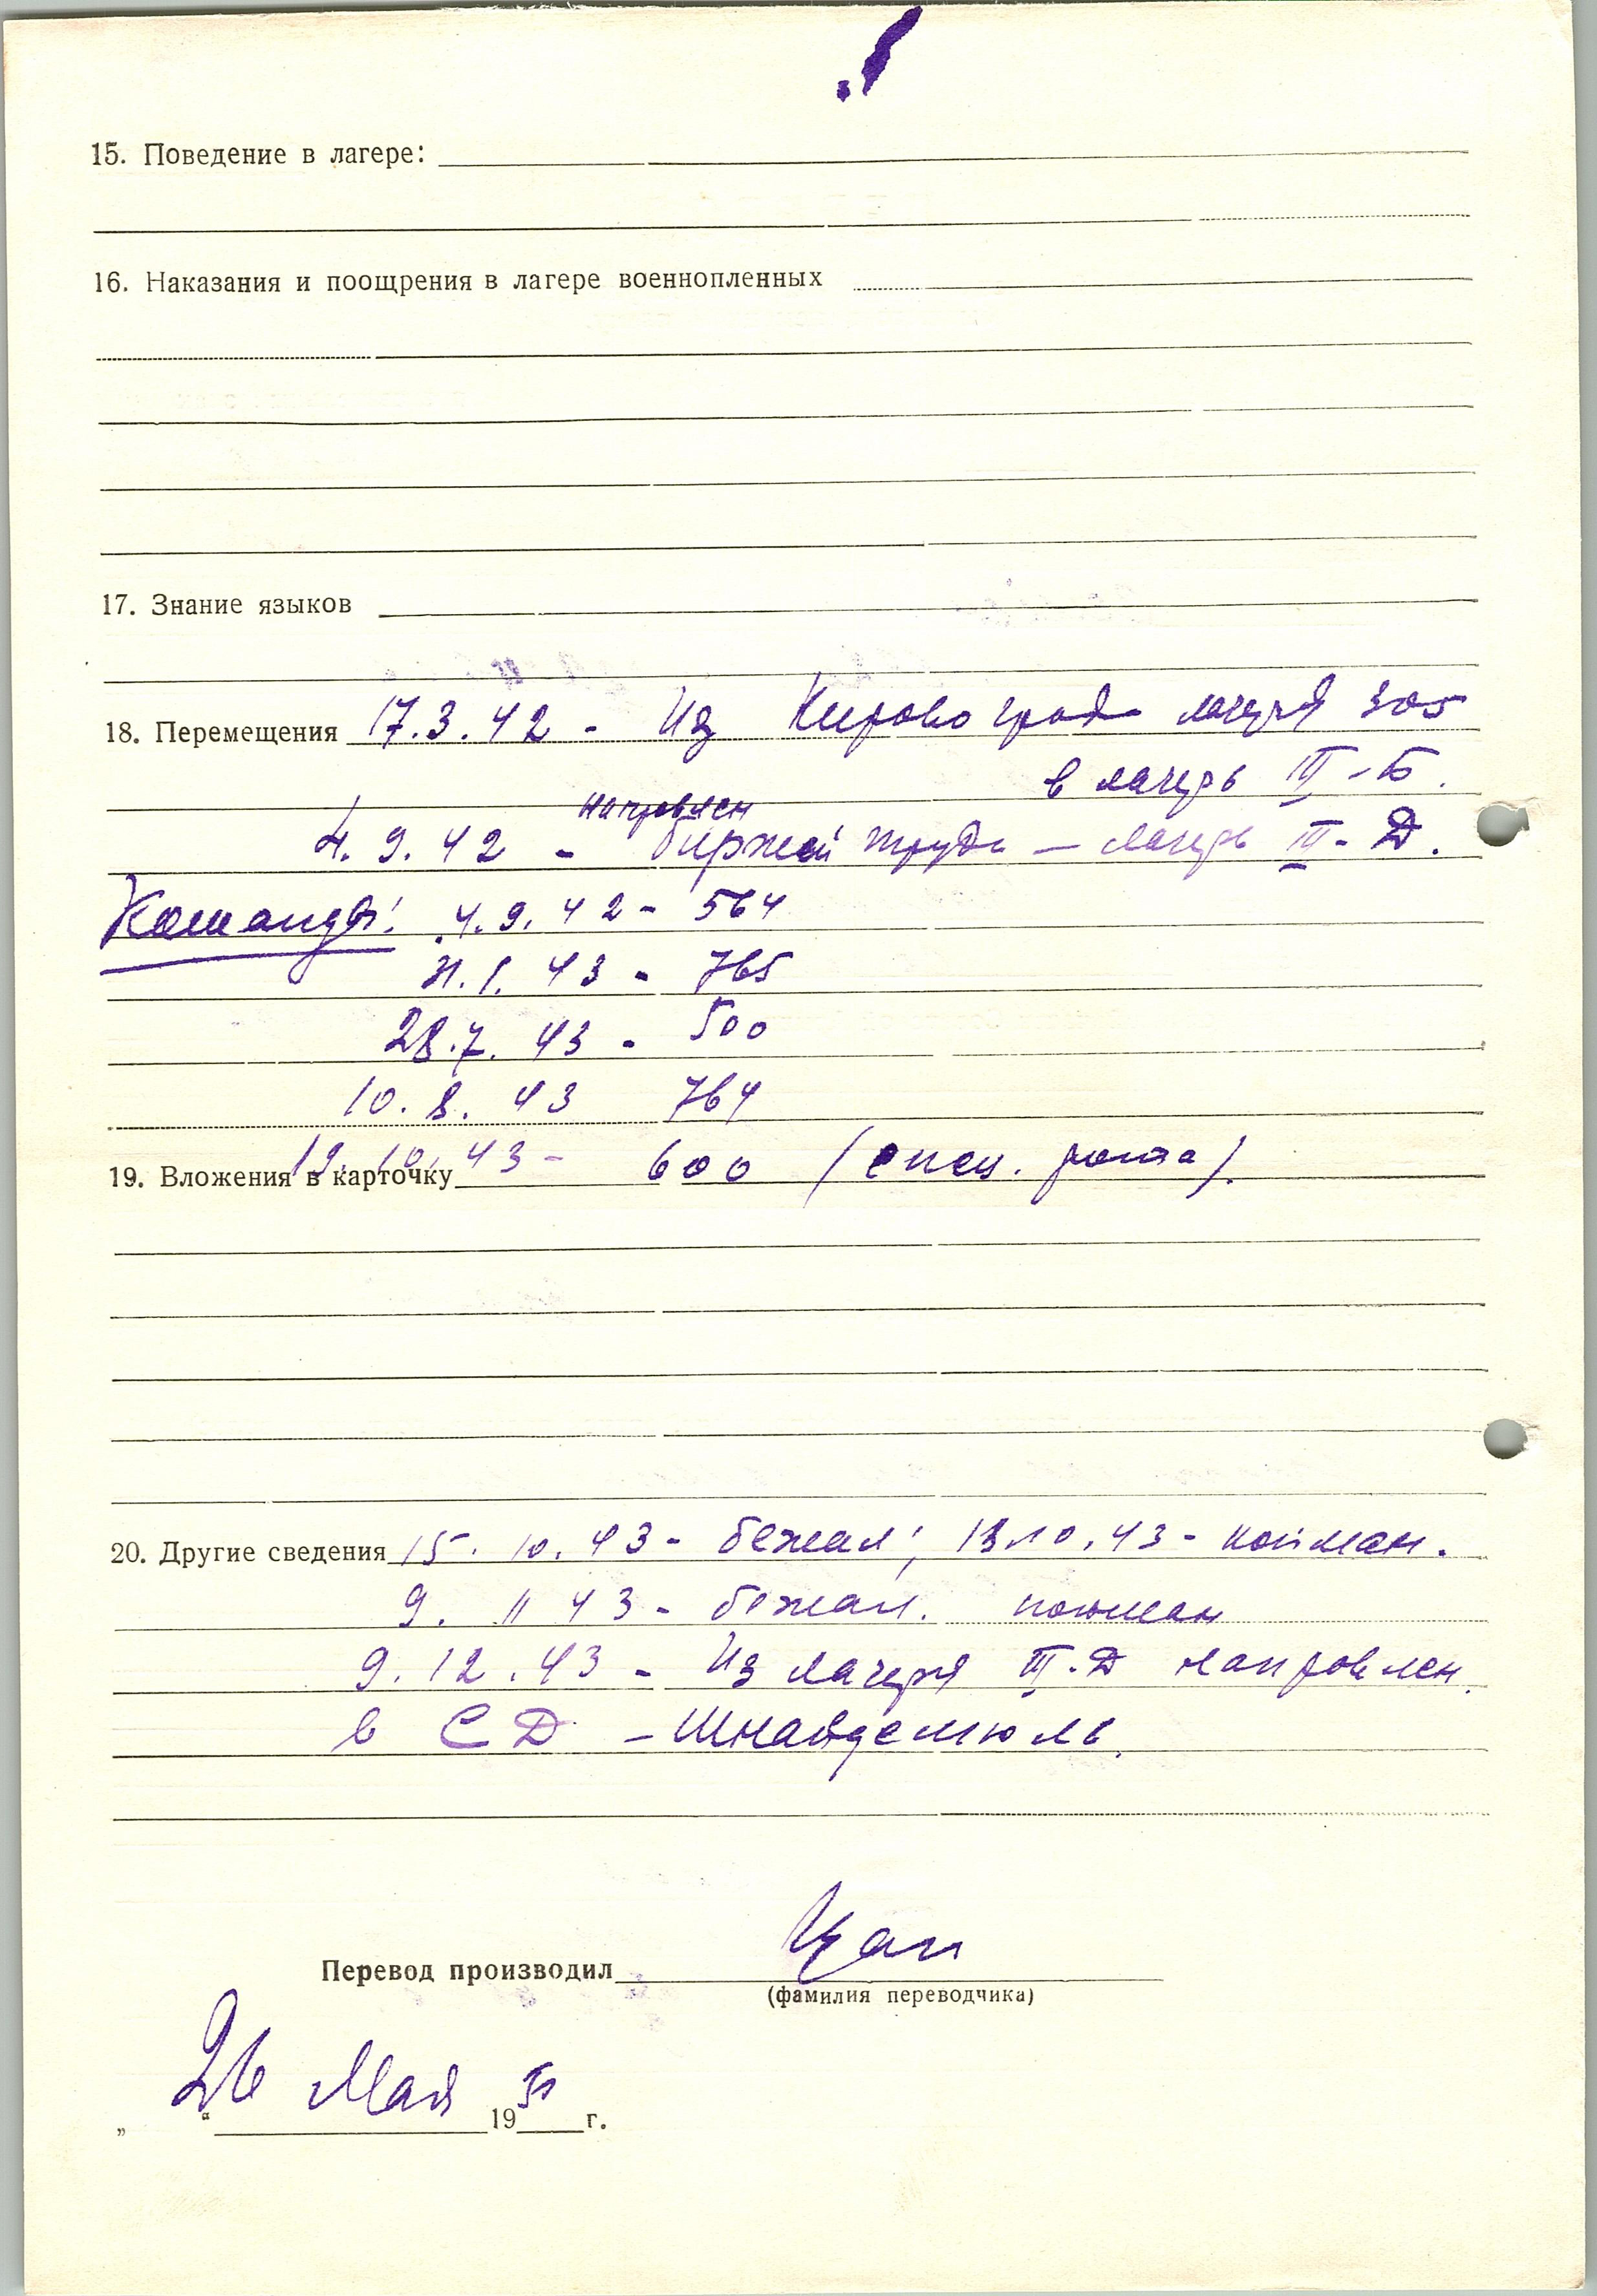 15. Поведение в лагере:
16. Наказания и поощрения в лагере военнопленных
17. Знание языков
18. Перемещения 17.3.42 - Из Кировограда лагеря 305
в лагерь II-Б.
направлен
4.9.42 - биржей труда - лагерь III-Д.
Команды: 4.9.42 - 564
21.1.43 - 765
28.7.43 - 500
10.8.43 764
19.10.43 - 600 (спец. рота).
19. Вложения в карточку
20. Другие сведения 15.10.43 - бежал; 18.10.43 - пойман.
9.11 43 - бежал. пойман
9.12.43 - Из лагеря III-Д направлен
в СД - Шнайдемюль.
Перевод производил
(фамилия переводчика)
„26“ Мая 1951 г.